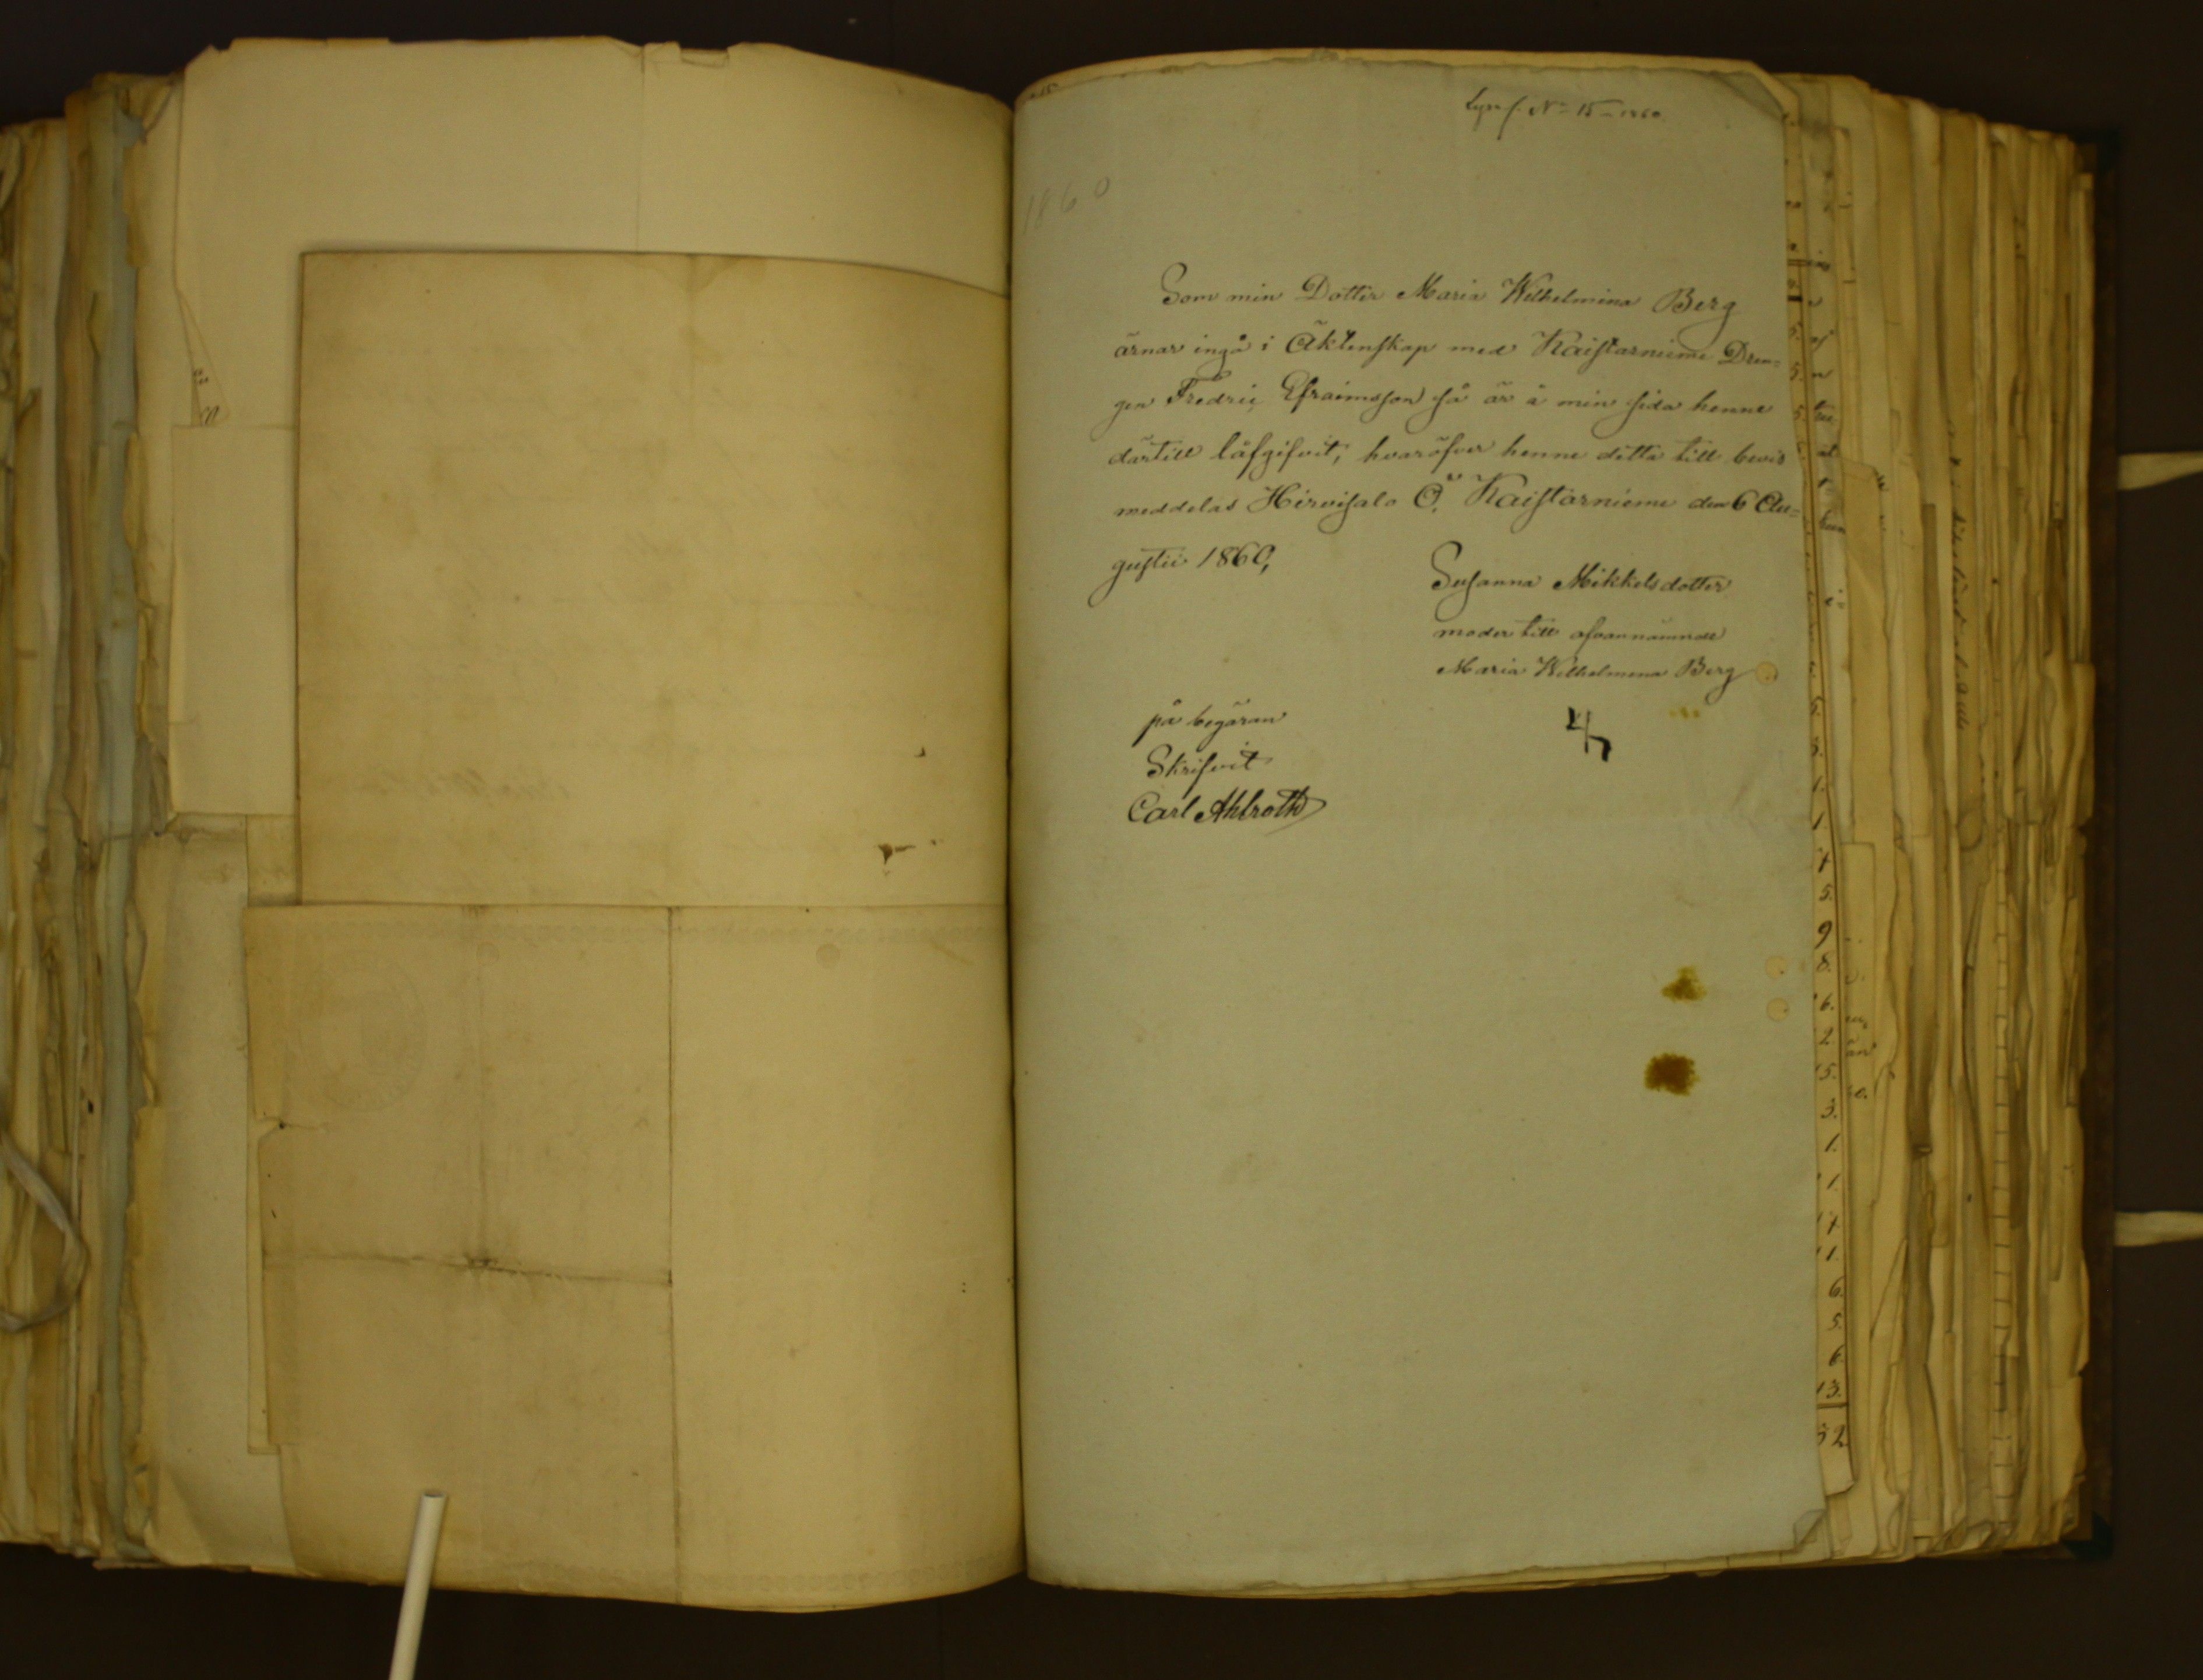 Lysn. f. No 15 - 1860
1860
Som min Dotter Maria Wilhelmina Berg
ärnar ingå i Äktenskap med Kaistarniemi Dren=
gen Fredric Efraimsson så är å min sida henne
därtill låfgifvit; hvaröfver henne detta till bevis
meddelas Hirvisalo Ö. Kaistarniemi den 6 Au=
gustii 1860,
Susanna Mikkelsdotter
moder till ofvannämnde
Maria Wilhelmina Berg
på begäran
Skrifvit
Carl Ahlroth